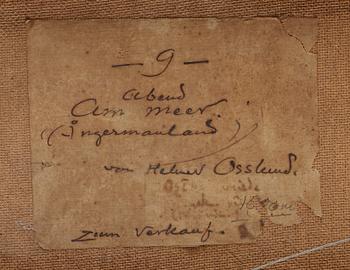 — 9 —
Abend
Am meer.
(Ångermanland)
von Helmer Osslund.
Zum Verkauf.